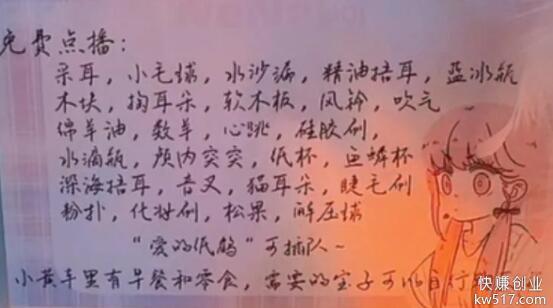 免费点播：
采耳，小毛球，水沙漏，精油捂耳，蓝冰瓶
木块，掏耳朵，软木板，风铃，吹气
绵羊油，数羊，心跳，硅胶刷，
水滴瓶，颅内突突，纸杯，鱼鳞杯
深海捂耳，音叉，猫耳朵，睫毛刷
粉扑，化妆刷，松果，解压球
“爱的纸鹤”可插队~
小黄车里有早餐和零食，需要的宝子可以自行
快赚创业
kw517.com